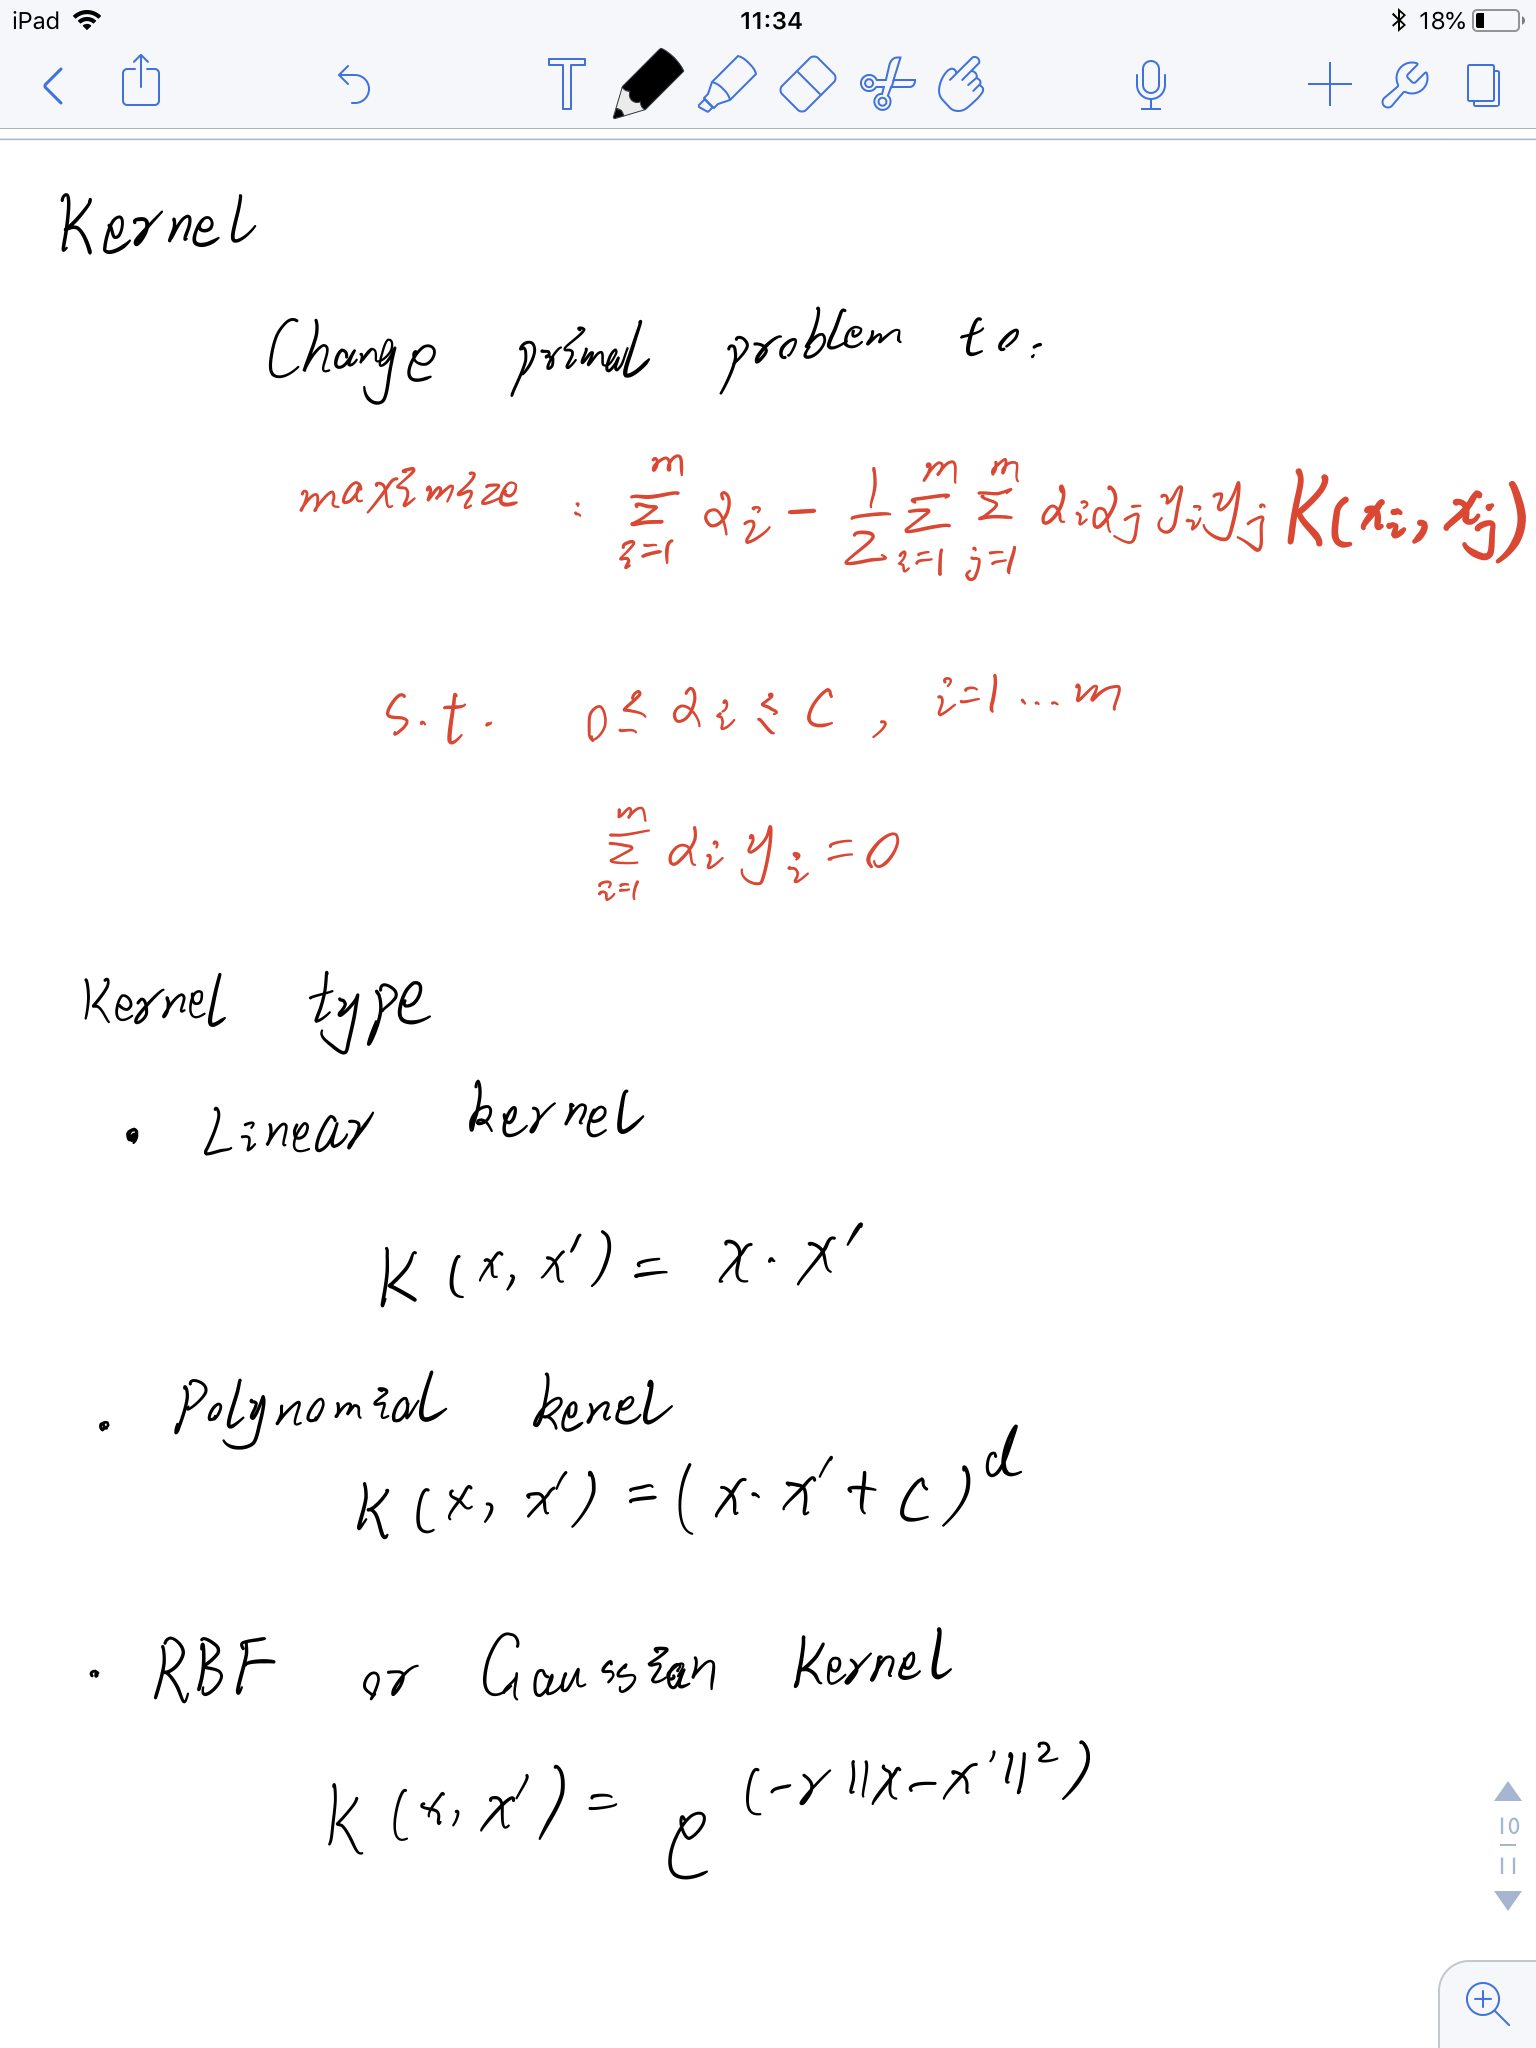 iPad 11:34 18%
T
Kernel
Change primal problem to:
maximize : \sum_{i=1}^{m} α_i - \frac{1}{2} \sum_{i=1}^{m} \sum_{j=1}^{m} α_i α_j y_i y_j K(x_i, x_j)
s.t. 0 ≤ α_i ≤ C , i=1...m
\sum_{i=1}^{m} α_i y_i = 0
Kernel type
• Linear kernel
K(x, x') = x · x'
• Polynomial kenel
K(x, x') = (x · x' + c)^d
• RBF or Gaussian Kernel
K(x, x') = e^{(-γ ||x - x'||^2)}
10
11